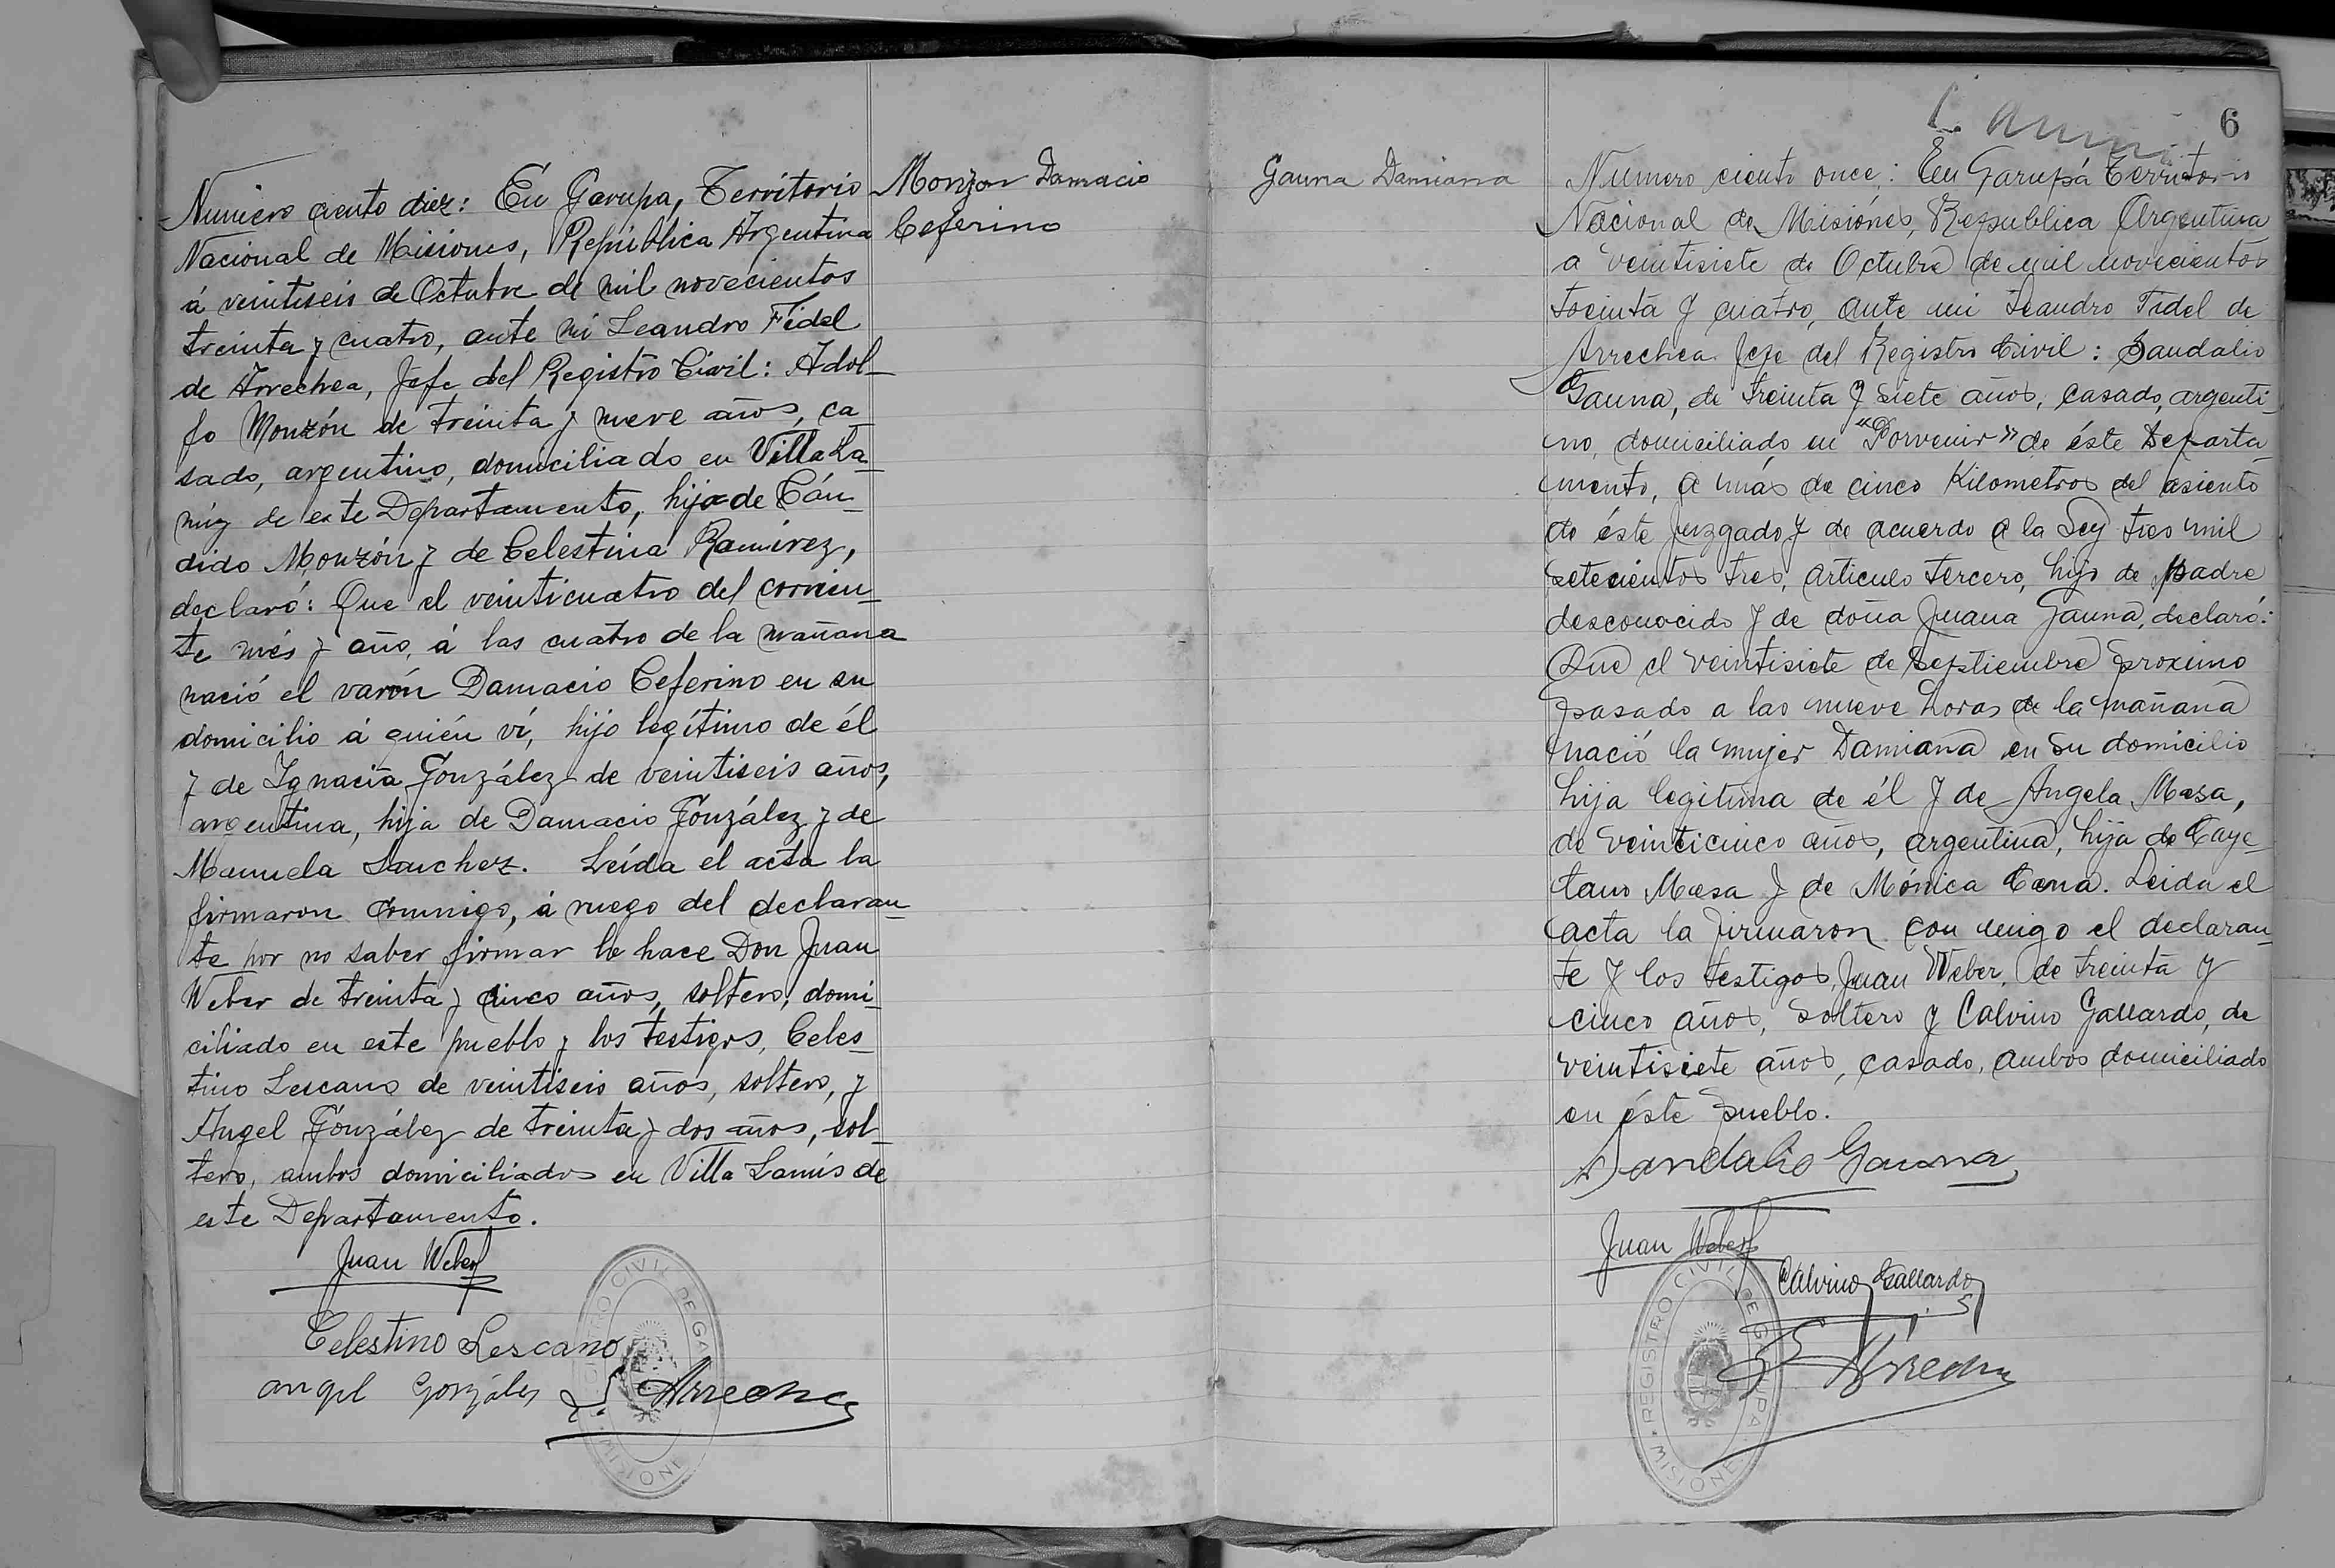 Monzon Damacio
Ceferino
Numero ciento diez: En Garupa, Territorio
Nacional de Misiones, República Argentina
á veintiseis de Octubre de mil novecientos
treinta y cuatro, ante mi Leandro Fidel
de Arrechea, Jefe del Registro Civil: Adol-
fo Monzón de treinta y nueve años, ca
sado, argentino, domiciliado en Villa La-
nús de este Departamento, hijo de Cán-
dido Monzón y de Celestina Ramirez,
declaró: Que el veinticuatro del corrien-
te més y año, á las cuatro de la mañana
nació el varón Damacio Ceferino en su
domicilio á quién ví, hijo legítimo de él
y de Ignacia González de veintiseis años,
argentina, hija de Damacio González y de
Manuela Sanchez. Leída el acta la
firmaron conmigo, á ruego del declaran-
te por no saber firmar lo hace Don Juan
Weber de treinta y cinco años, soltero, domi-
ciliado en este pueblo y los testigos, Celes-
tino Lescano de veintiseis años, soltero, y
Angel González de treinta y dos años, sol-
tero, ambos domiciliados en Villa Lanús de
este Departamento.
Juan Weber
Celestino Lescano
angel Gonzáles
L. Arrechea
REGISTRO CIVIL DE GARUPA
MISIONES
6
Gauna Damiana
Numero ciento once: En Garupá Territorio
Nacional de Misiónes, Republica Argentina
a veintisiete de Octubre de mil novecientos
treinta y cuatro, ante mi Leandro Fidel de
Arrechea Jefe del Registro Civil: Sandalio
Gauna, de treinta y siete años, casado, argenti-
no, domiciliado en "Porvenir" de éste Departa-
mento, a más de cinco Kilometros del asiento
de éste Juzgado y de acuerdo a la Ley tres mil
setecientos tres, articulo tercero, hijo de padre
desconocido y de doña Juana Gauna, declaró:
Que el veintisiete de Septiembre proximo
pasado a las nueve horas de la mañana
nació la mujer Damiana en su domicilio
hija legitima de él y de Angela Masa,
de veinticinco años, argentina, hija de Caye-
tano Masa y de Mónica Cena. Leida el
acta la firmaron con migo el declaran-
te y los testigos, Juan Weber, de treinta y
cinco años, soltero y Calvino Gallardo, de
veintisiete años, casado, ambos domiciliado
en éste pueblo.
Sandalio Gauna
Juan Weber
Calvino Gallardo
L. Arrechea
REGISTRO CIVIL DE GARUPA
MISIONES